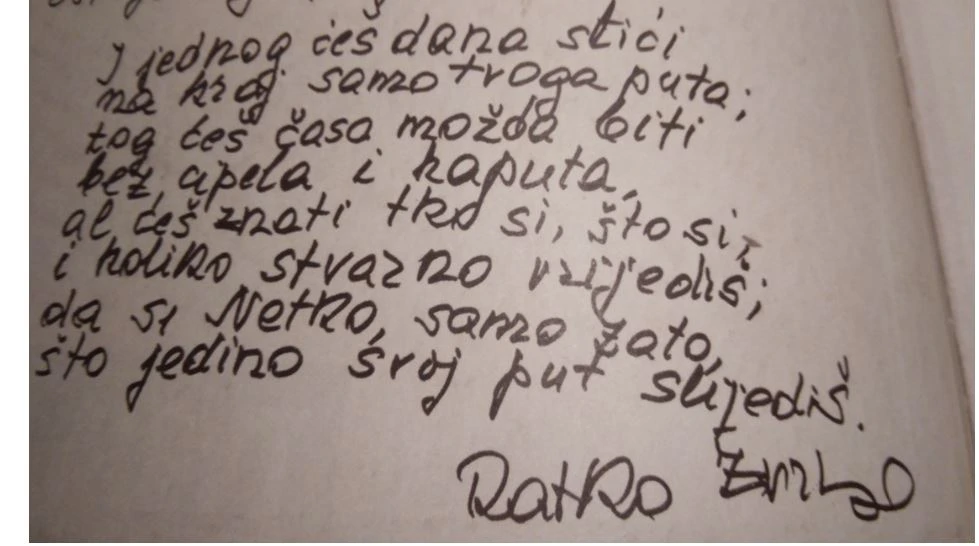 I jednog ćeš dana stići
na kraj samo tvoga puta;
tog ćeš časa možda biti
bez cipela i kaputa,
al ćeš znati tko si, što si,
i koliko stvarno vrijediš;
da si Netko, samo zato,
što jedino svoj put slijediš.
Ratko